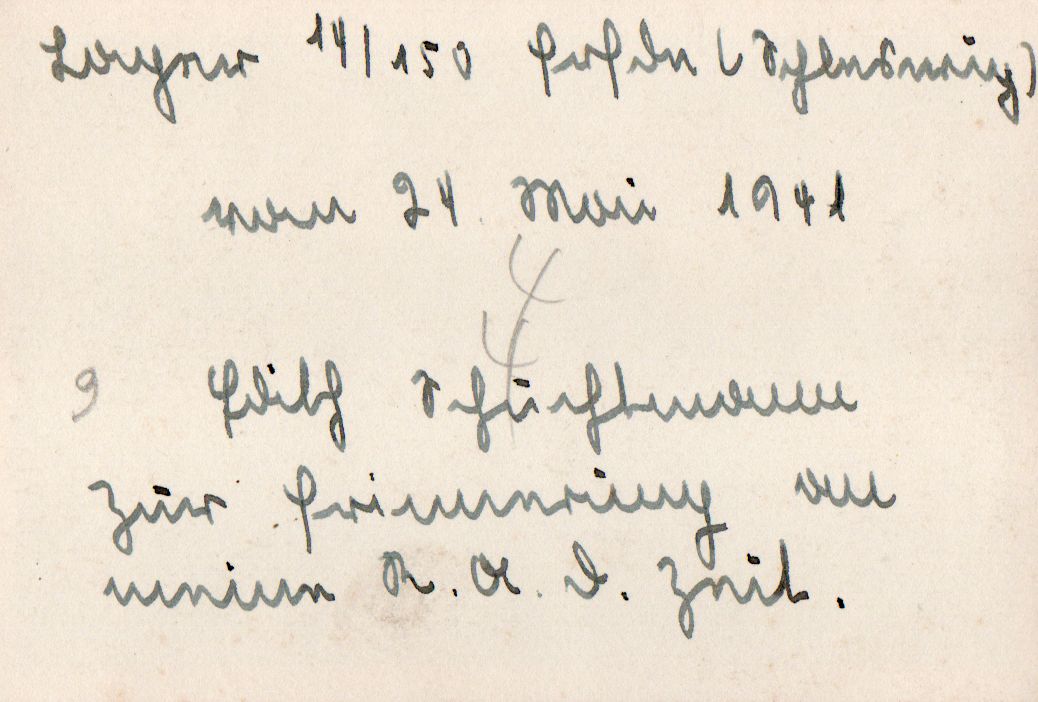 Lager 14/150 Erfde (Schleswig)
vom 24. Mai 1941
4
4
9 Edith Schüchtmann
zur Erinnerung an
meine R. A. D. Zeit.